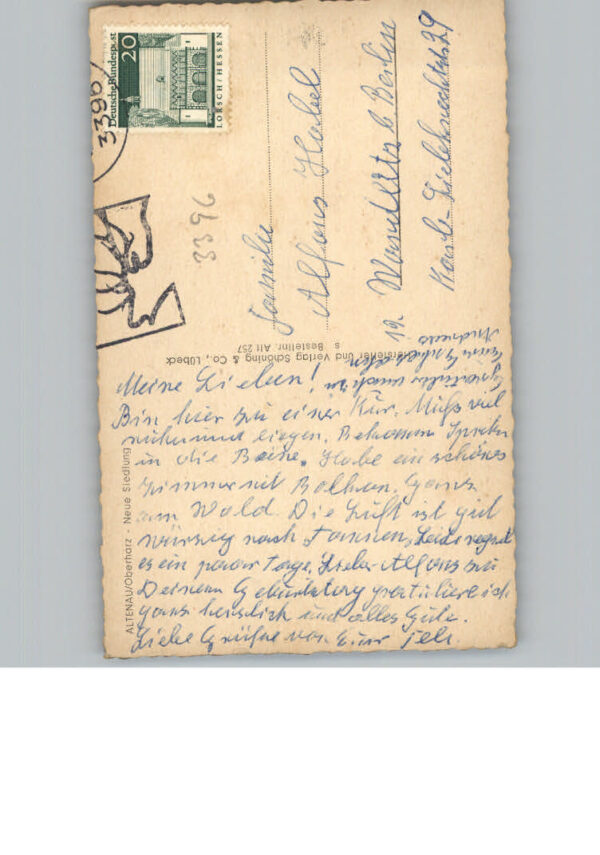 Deutsche Bundespost
20
LORSCH/HESSEN
3396
3396
Familie
Alfons Habel
19. Wandlitz b. Berlin
Karl-Liebknechtstr. 29
Herausgeber und Verlag Schöning & Co., Lübeck
s Bestellnr. Alt 257
ALTENAU/Oberharz - Neue Siedlung
Meine Lieben!
Bin hier zu einer Kur. Muß viel
ruhn und liegen. Bekomme Spritzen
in die Beine. Habe ein schönes
Zimmer mit Balkon. Ganz
am Wald. Die Luft ist gut
würzig nach Tannen. Leider regnet
es ein paar Tage. Lieber Alfons zu
Deinem Geburtstag gratuliere ich
ganz herzlich und alles Gute.
Liebe Grüße von Eurer
Gratuliere auch
Andreas